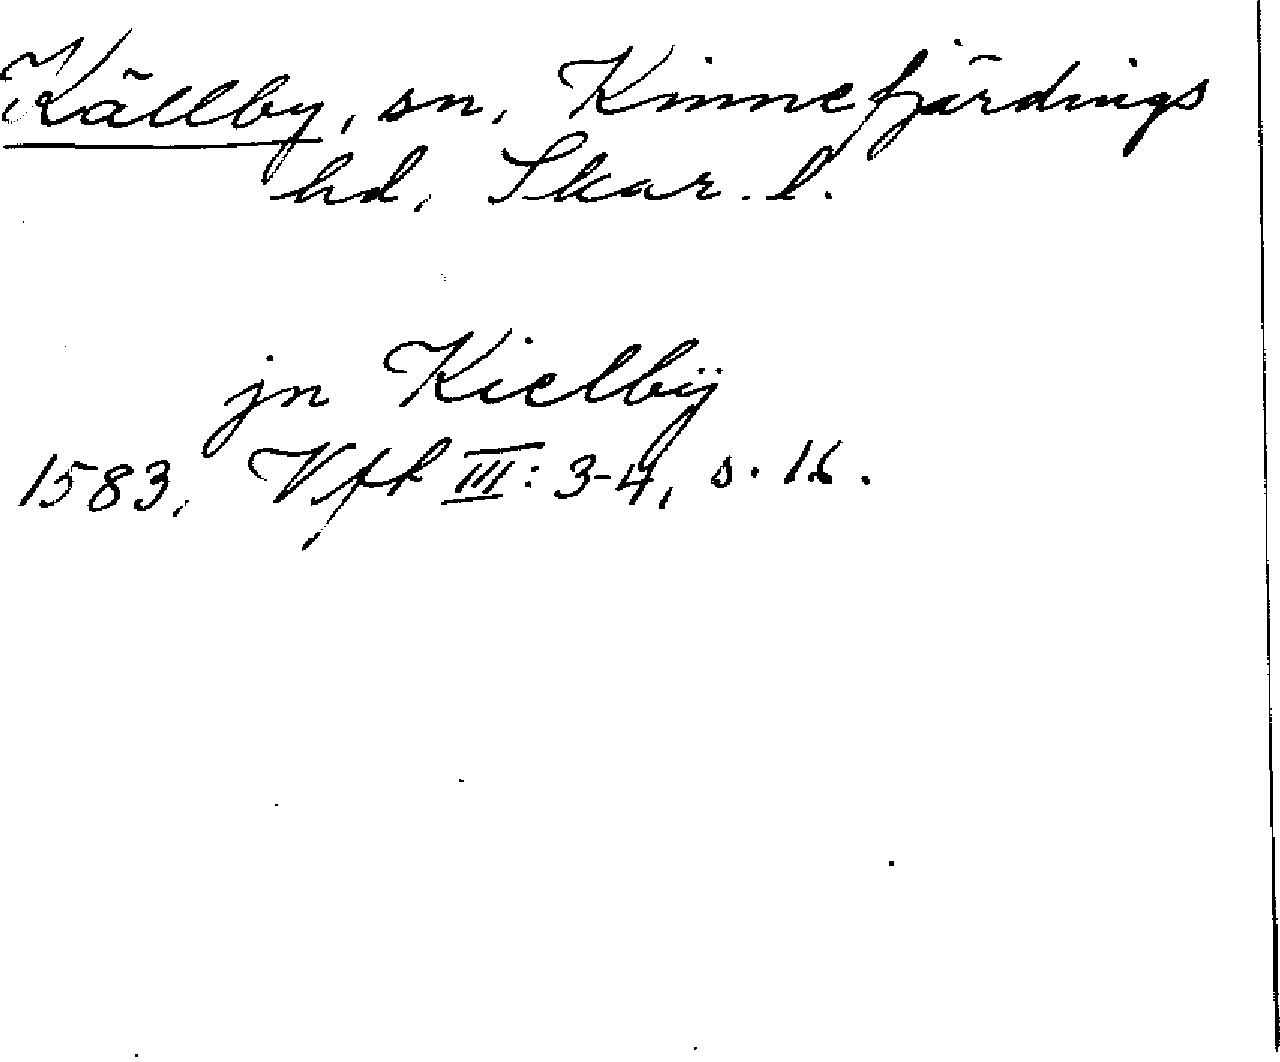 Källby, sn, Kinnefjärdings
hd, Skar. l.
jn Kielbÿ
1583, Vfk III: 3-4, s. 16.